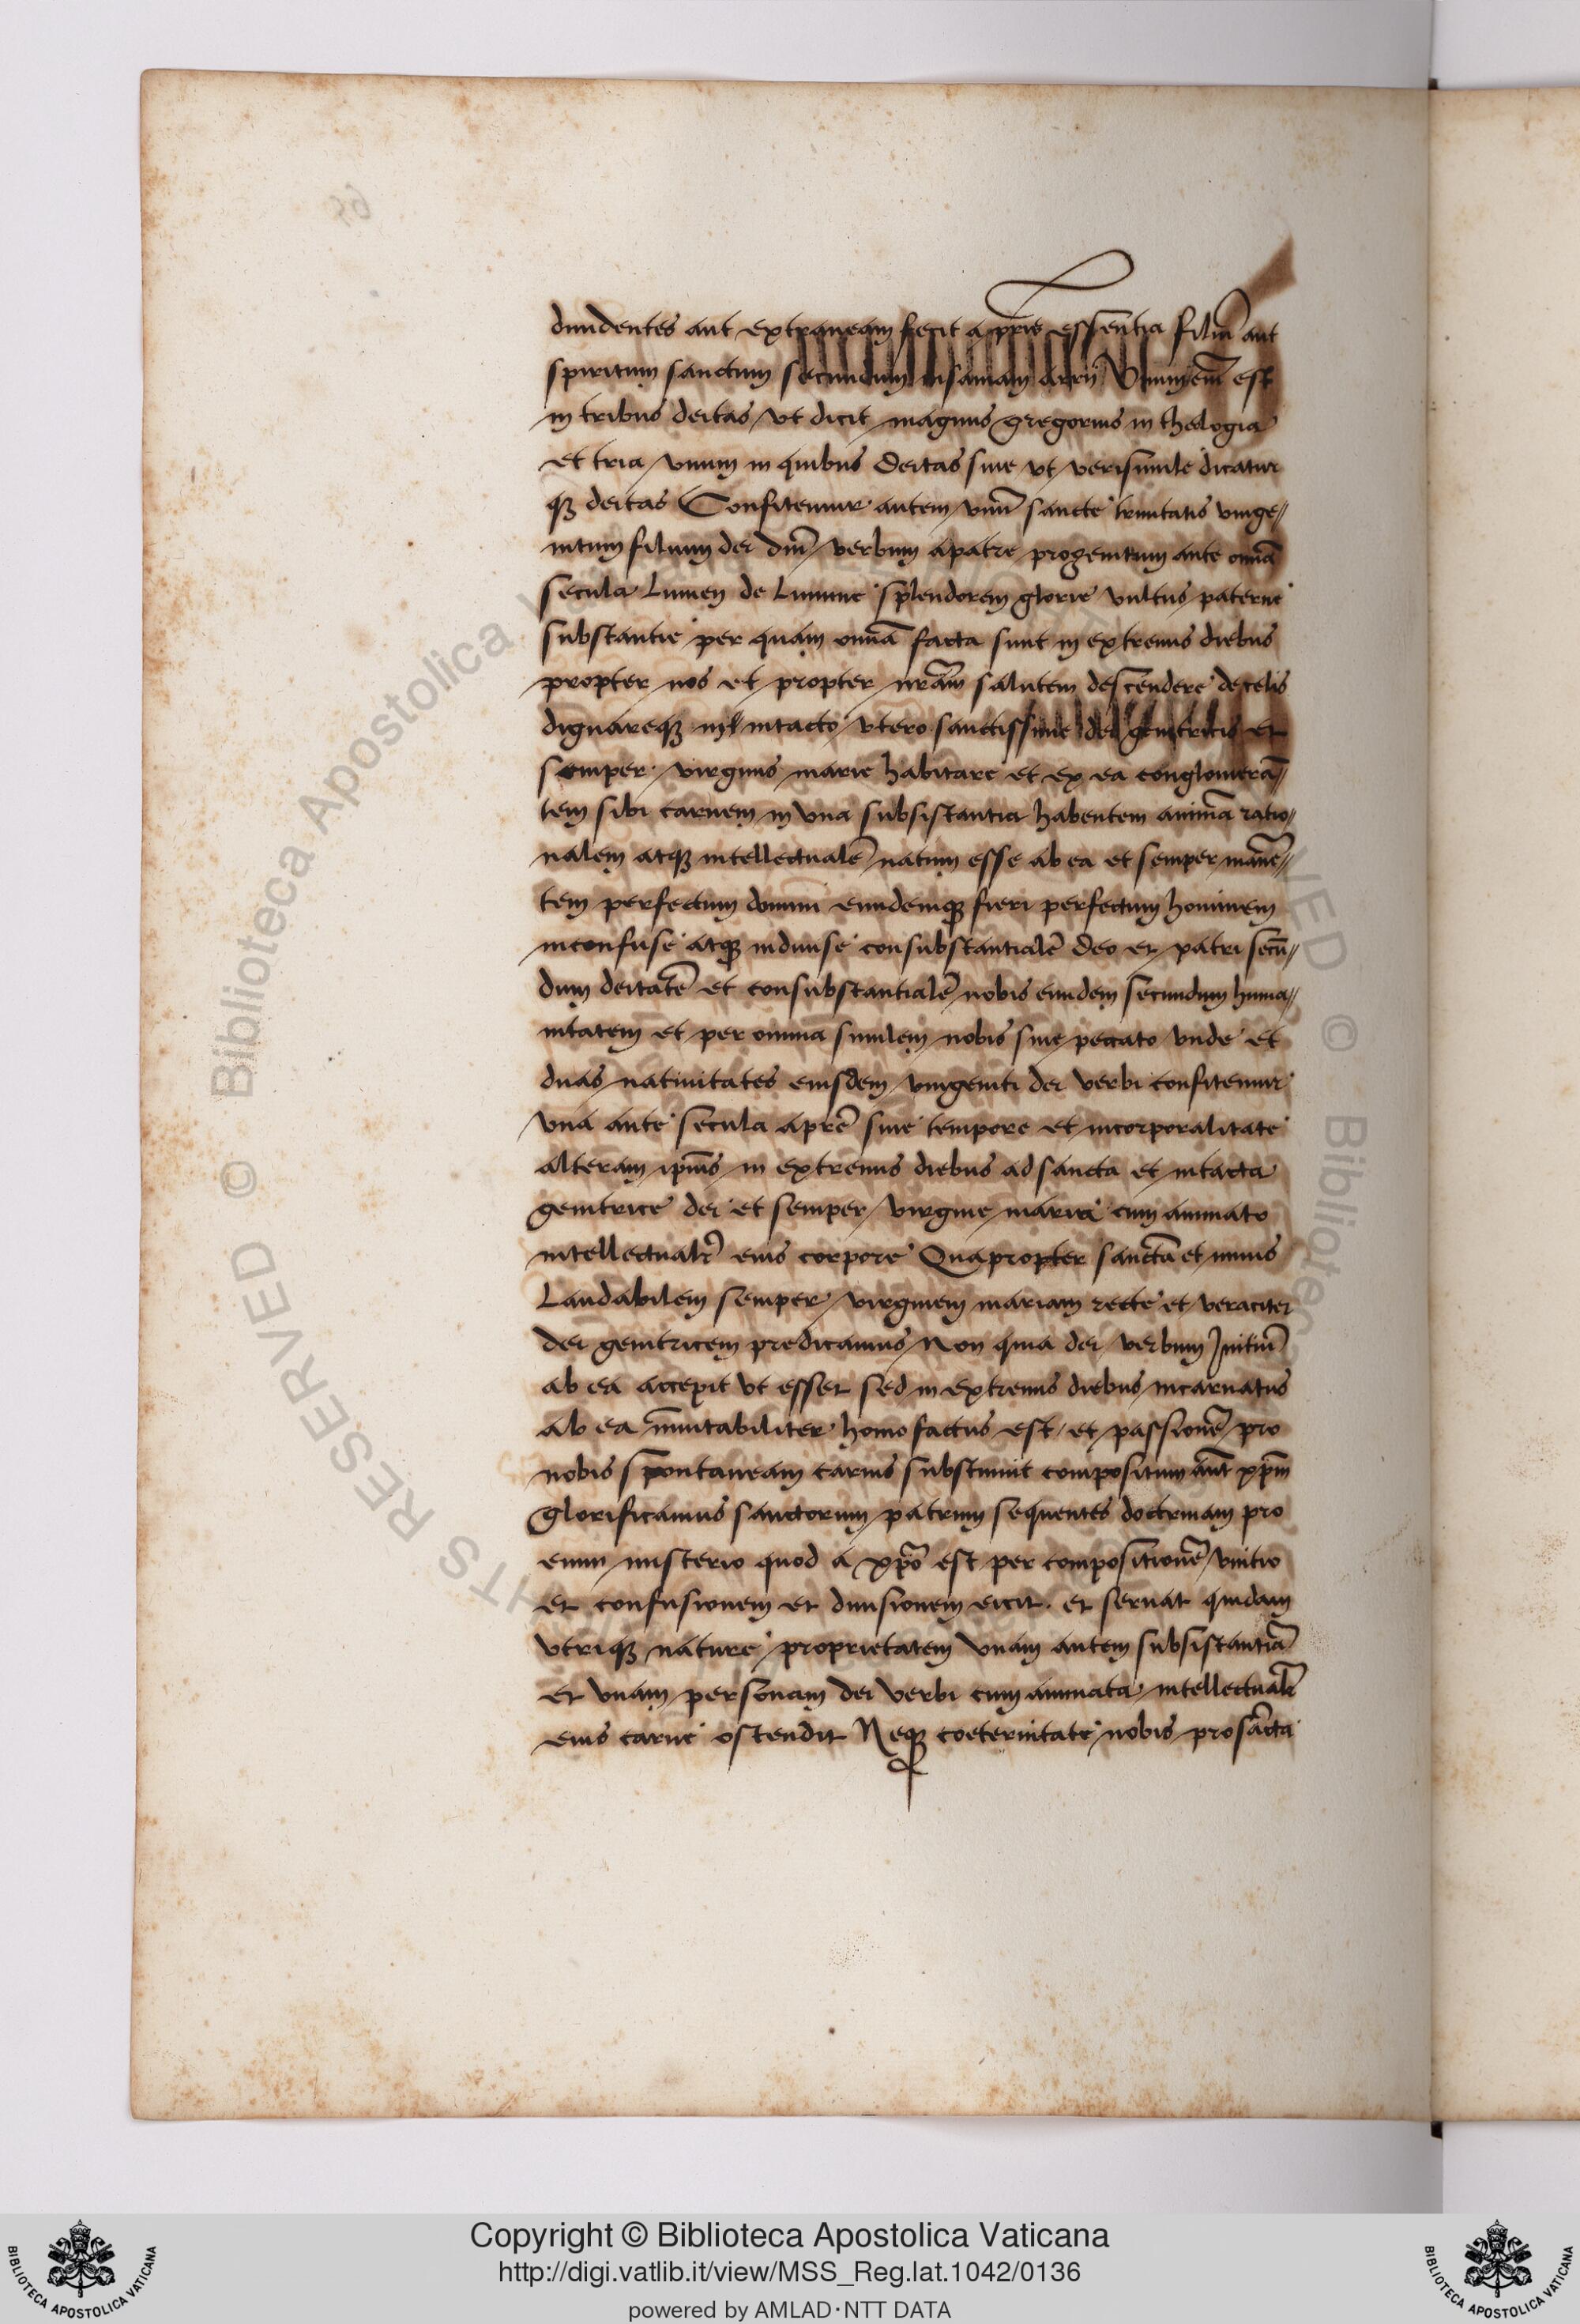 diuidentes aut extraneam fecit a pris essentia filiū aut
spiritum sanctum secundum insaniam arrii Vnum em̄ est
in tribus deitas ut dicit magnus gregorius in theologia
et tria vnum in quibus deitas siue ut verisimile dicatur
qȝ deitas Confitemur autem vnū sancte trinitatis vnige//
nitum filium dei dm̄ verbum apatre progenitum ante om̄a
secula Lumen de Lumine splendorem glorie vultus paterne
substantie per quam om̄a facta sunt in extremis diebus
propter nos et propter nr̄am salutem descendere de celis
dignareqȝ in intacto vtero sanctissime dei genitricis et
semper virginis marie habitare et ex ea conglomerā//
tem sibi carnem in vna subsistantia habentem animā ratio//
nalem atqȝ intellectualē natum esse ab ea et semper manē//
tem perfectum domini eundemqȝ fieri perfectum hominem
inconfuse atqȝ indiuise consubstantialē deo et patri secū//
dum deitatē et consubstantialē nobis eundem secundum huma//
nitatem et per omnia similem nobis sine peccato vnde et
duas natiuitates eiusdem vnigeniti dei verbi confitemur
vna ante secula aprē sine tempore et incorporalitate
alteram ipm̄s in extremis diebus ad sancta et intacta
genitrice dei et semper virgine maria cum animato
intellectualr̄ eius corpore Quapropter sanctā et nimis
Laudabilem semper virginem mariam recte et veraciter
dei genitricem predicamus Non quia dei verbum Initiū
ab ea accepit vt esset sed in extremis diebus incarnatus
ab ea īmutabiliter homo factus est et passionē pro
nobis spontaneam carnis substinuit compositum aūt xp̄m
glorificamus sanctorum patrum sequentes doctrinam pro
enim misterio quod a xp̄o est per compositionē vnitio
et confusionem et diuisionem eicit. et seruat quidam
vtriqȝ nature proprietatem vnam autem subsistantiā
et vnam personam dei verbi cum animata intellectualr̄
eius carne ostendit Neqȝ coeternitate nobis pro sācta
VED © Bibliotec
HTS RESERVED © Biblioteca Apostolica
BIBLIOTECA APOSTOLICA VATICANA
Copyright © Biblioteca Apostolica Vaticana
http://digi.vatlib.it/view/MSS_Reg.lat.1042/0136
powered by AMLAD·NTT DATA
BIBLIOTECA APOSTOLICA VATICANA